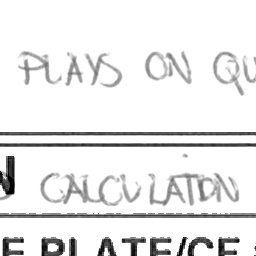 PLAYS ON QU
N CALCULATION
E PLATE/CE